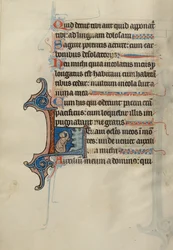 Quid detur tibi aut quid aponat
tibi ad linguam dolosam
Sagitte potentis acute cum car
bonibus desolatoriis
Heu michi quia incolatus meus p
longatus est habitaui cum habitan
tibus cedar multum incola fuit a
nima mea
Cum hiis qui oderunt pacem eram
pacificus cum loquebar illis im
pugnabant me gratis
Leuaui oculos meos i mo
tes unde veniet auxili
um michi
Auxilium meum a domino qui